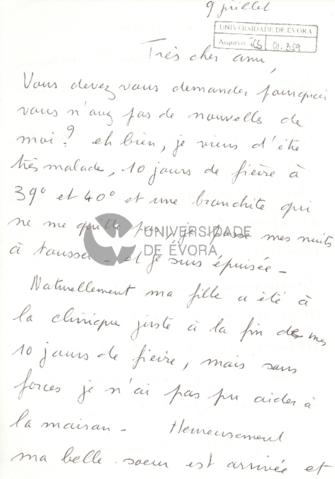 9 juillet
UNIVERSIDADE DE ÉVORA
Arquivo
Très cher ami,
Vous devez vous demander pourquoi
vous n'avez pas de nouvelles de
moi ? eh bien, je viens d'être
très malade, 10 jours de fièvre à
39° et 40° et une bronchite qui
ne me quitte pas mes nuits
UNIVERSIDADE
DE ÉVORA
à tousser et je suis épuisée -
Naturellement ma fille a été à
la clinique juste à la fin de mes
10 jours de fièvre, mais sans
forces je n'ai pas pu aider à
la maison - Heureusement
ma belle-soeur est arrivée et